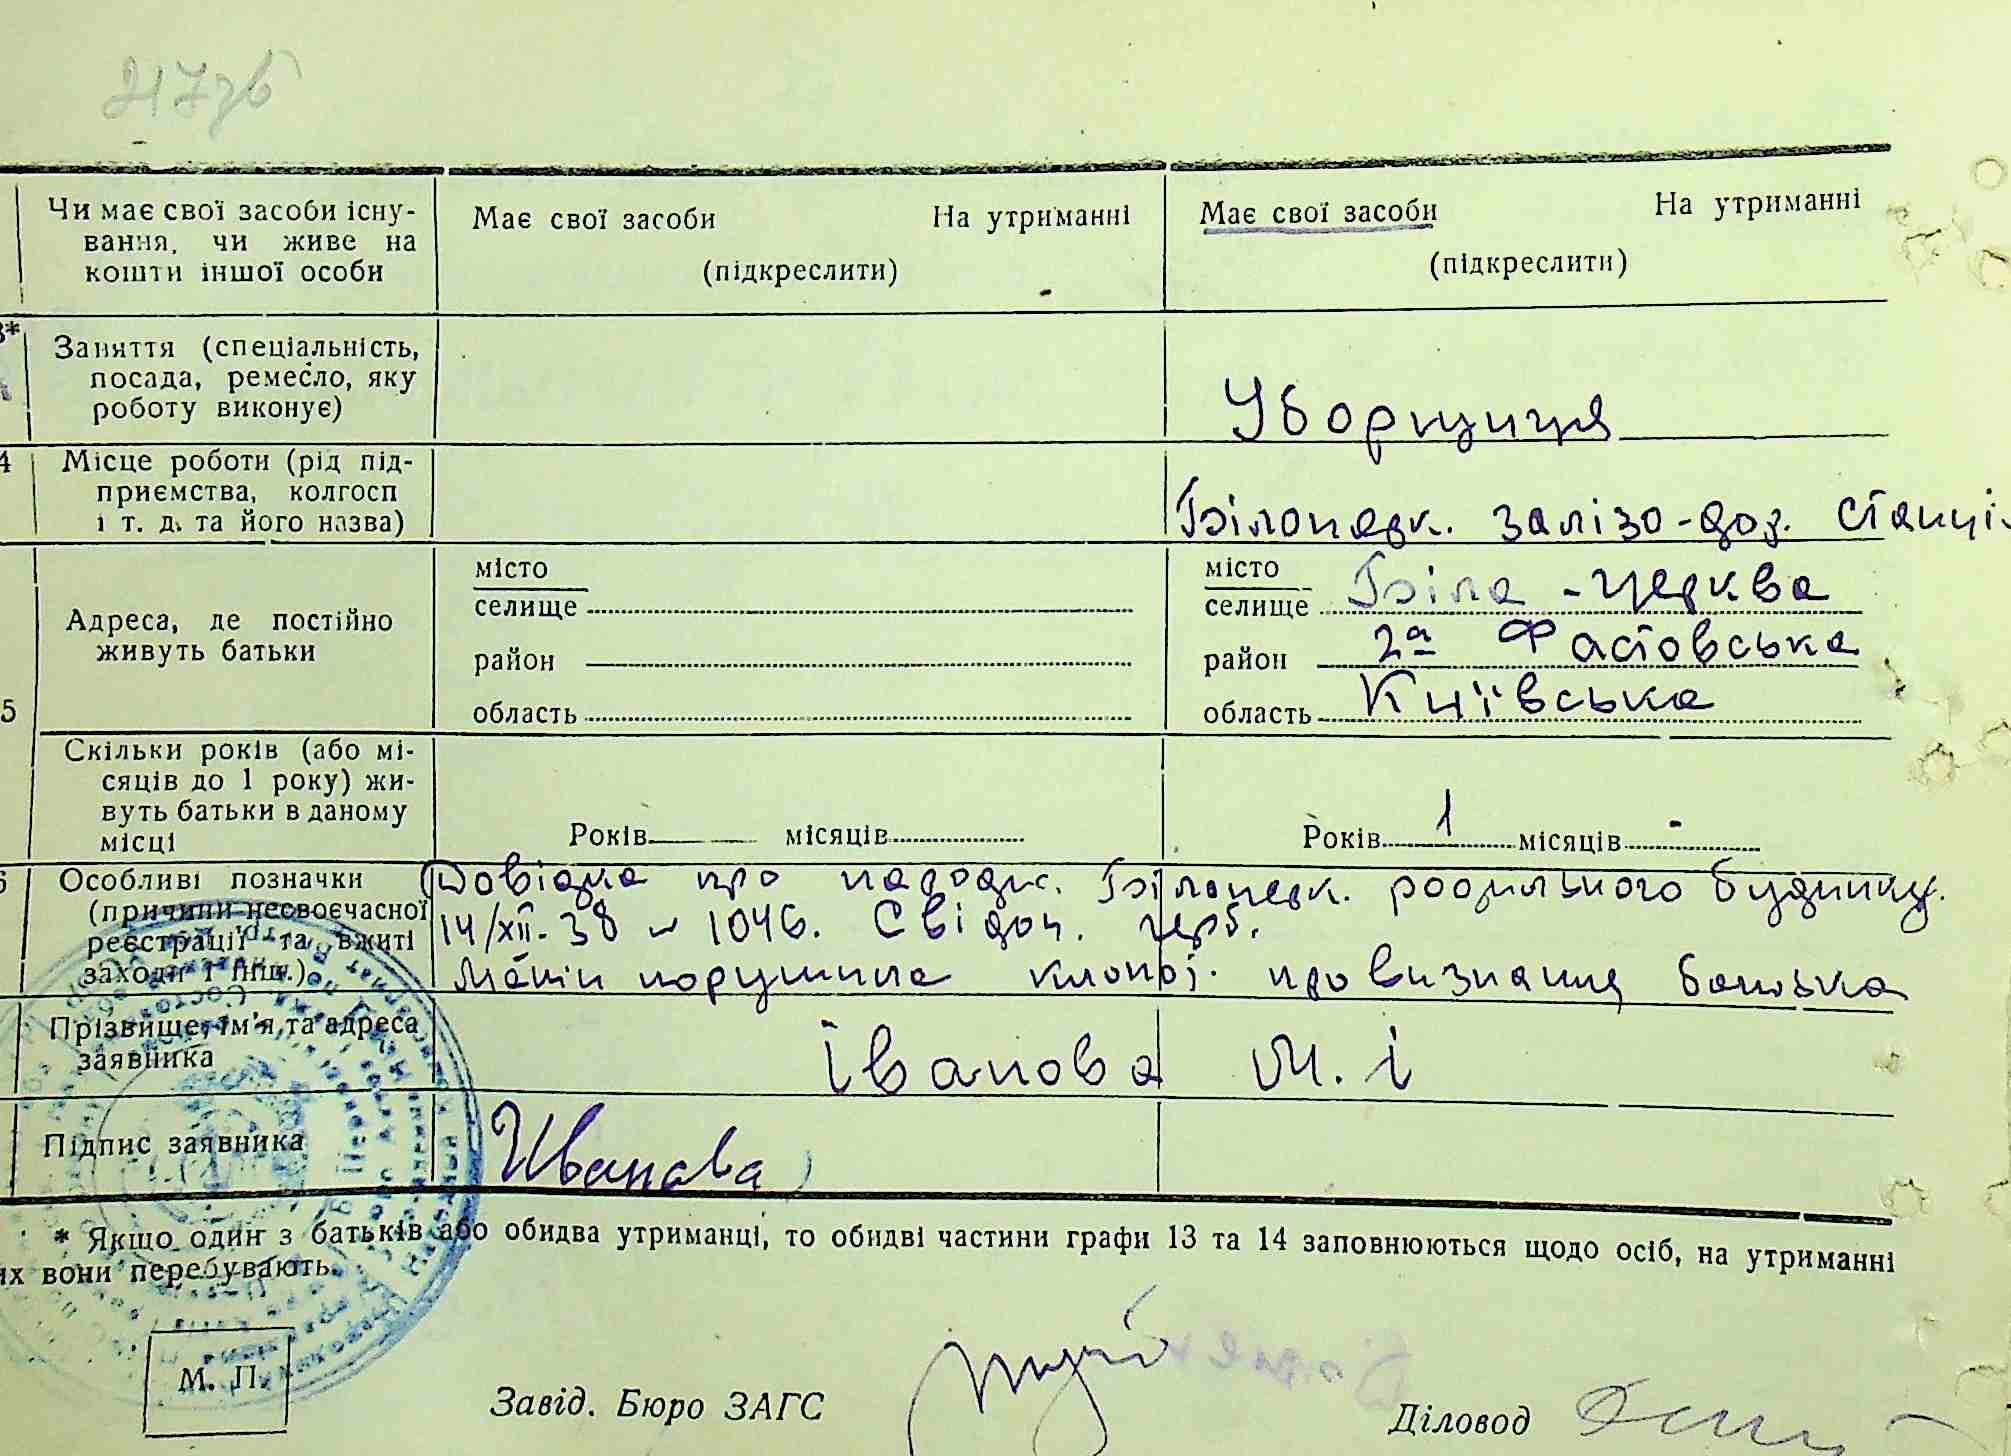 217зв
Чи має свої засоби існу- Має свої засоби На утриманні Має свої засоби На утриманні
вання, чи живе на
кошти іншої особи (підкреслити) (підкреслити)
3* Заняття (спеціальність,
посада, ремесло, яку
роботу виконує) Уборщиця
4 Місце роботи (рід під-
приємства, колгосп
і т. д. та його назва) Білоцерк. залізо-дор. станція
місто місто Біла-Церква
Адреса, де постійно селище селище
живуть батьки район район 2а Фастовська
5 область область Київська
Скільки років (або мі-
сяців до 1 року) жи-
вуть батьки в даному
місці Років місяців Років 1 місяців -
6 Особливі позначки Довідка про народж. Білоцерк. родильного будинку.
(причини несвоєчасної 14/XII-38 № 1046. Свідоч. герб.
реєстрації та вжиті
заходи і інш.) Матір порушила клопот. про визнання батька
Прізвище, ім'я та адреса
заявника Іванова М. І
Підпис заявника Иванова
* Якщо один з батьків або обидва утриманці, то обидві частини графи 13 та 14 заповнюються щодо осіб, на утриманні
их вони перебувають.
М. П.
Завід. Бюро ЗАГС
Діловод